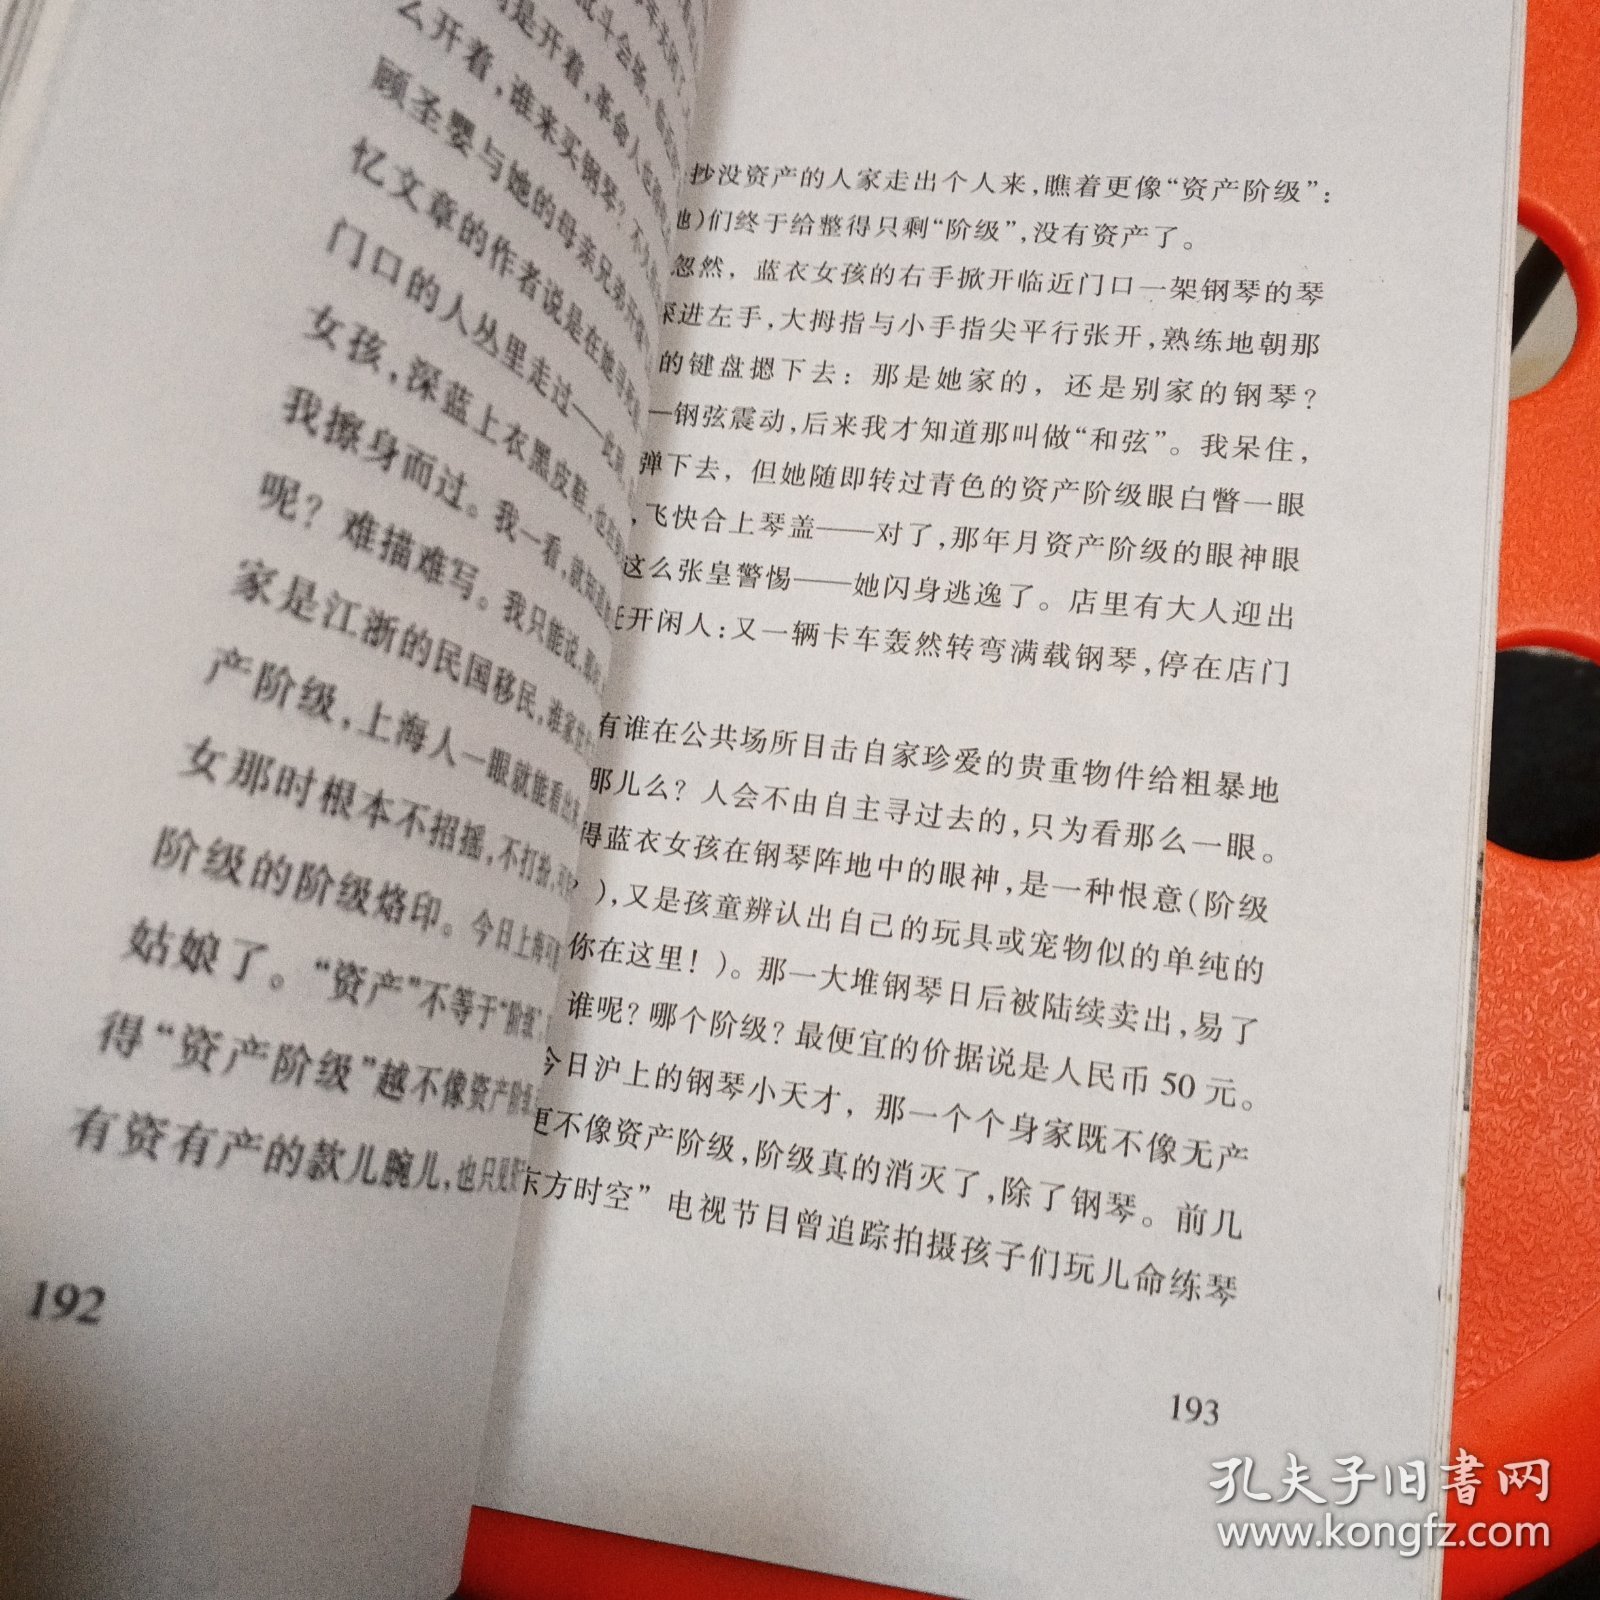 么开着，谁来买钢琴？
顾圣婴与她的母亲兄弟开
忆文章的作者说是在她寻死
门口的人丛里走过——此
女孩，深蓝上衣黑皮鞋，也在
我擦身而过。我一看，就知道
呢？难描难写。我只能说，那
家是江浙的民国移民，谁家
产阶级，上海人一眼就能看出来
女那时根本不招摇，不打扮，可
阶级的阶级烙印。今日上海可
姑娘了。“资产”不等于“阶级”，
得“资产阶级”越不像资产阶级
有资有产的款儿腕儿，也只更
192
抄没资产的人家走出个人来，瞧着更像“资产阶级”：
)们终于给整得只剩“阶级”，没有资产了。
忽然，蓝衣女孩的右手掀开临近门口一架钢琴的琴
进左手，大拇指与小手指尖平行张开，熟练地朝那
的键盘摁下去：那是她家的，还是别家的钢琴？
—钢弦震动，后来我才知道那叫做“和弦”。我呆住，
弹下去，但她随即转过青色的资产阶级眼白瞥一眼
，飞快合上琴盖——对了，那年月资产阶级的眼神眼
这么张皇警惕——她闪身逃逸了。店里有大人迎出
开闲人：又一辆卡车轰然转弯满载钢琴，停在店门
有谁在公共场所目击自家珍爱的贵重物件给粗暴地
那儿么？人会不由自主寻过去的，只为看那么一眼。
得蓝衣女孩在钢琴阵地中的眼神，是一种恨意（阶级
），又是孩童辨认出自己的玩具或宠物似的单纯的
你在这里！）。那一大堆钢琴日后被陆续卖出，易了
谁呢？哪个阶级？最便宜的价据说是人民币 50 元。
今日沪上的钢琴小天才，那一个个身家既不像无产
更不像资产阶级，阶级真的消灭了，除了钢琴。前几
东方时空”电视节目曾追踪拍摄孩子们玩儿命练琴
193
孔夫子旧书网
www.kongfz.com